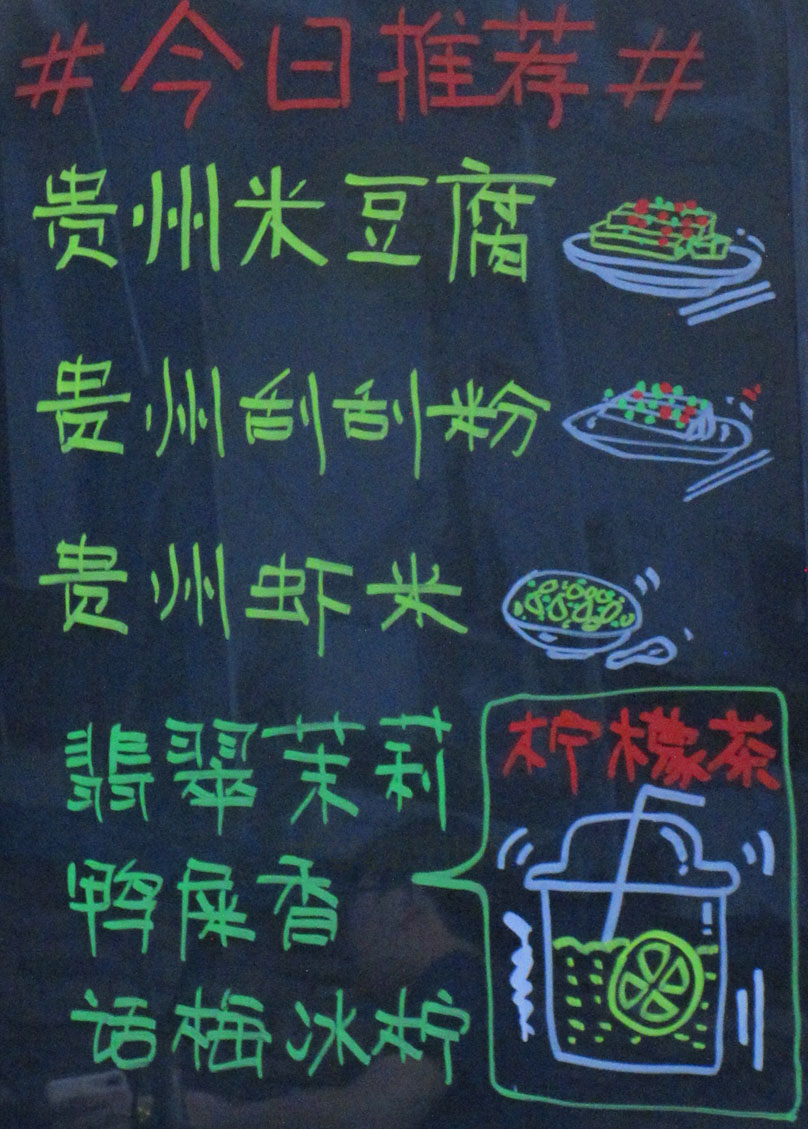 #今日推荐#
贵州米豆腐
贵州刮刮粉
贵州虾米
翡翠茉莉
鸭屎香
话梅冰柠
柠檬茶